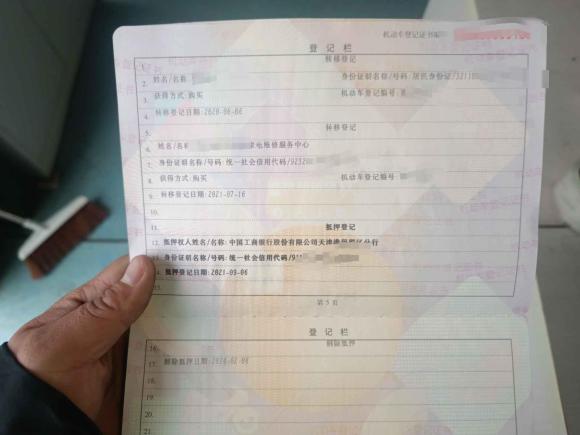 机动车登记证书编号
登记栏
1. 转移登记
2. 姓名/名称 身份证明名称/号码:居民身份证/3211
3. 获得方式:购买 机动车登记编号
4. 转移登记日期:2020-06-06
5. 转移登记
6. 姓名/名称 电维修服务中心
7. 身份证明名称/号码:统一社会信用代码/9232
8. 获得方式:购买 机动车登记编号
9. 转移登记日期:2021-07-16
10.
11. 抵押登记
12. 抵押权人姓名/名称:中国工商银行股份有限公司天津 分行
13. 身份证明名称/号码:统一社会信用代码/911
14. 抵押登记日期:2021-09-06
15.
第5页
登记栏
16. 解除抵押
17. 解除抵押日期:
18.
19.
20.
21.